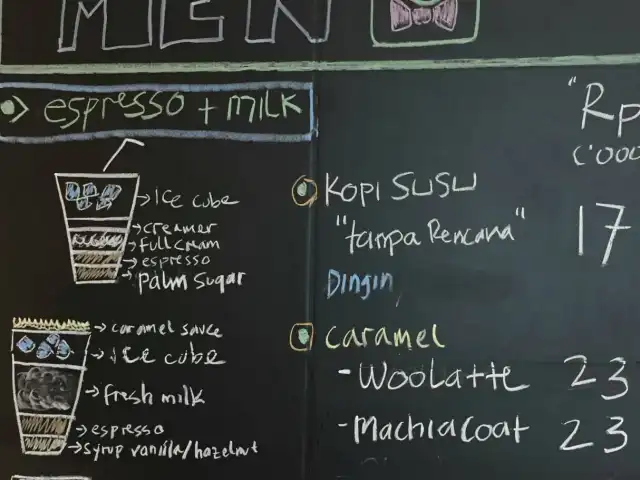 MEN
espresso + MILK
"Rp
('000
Ice cube
creamer
Full cream
espresso
Palm Sugar
KOPI SUSU
"tanpa Rencana"
17
Dingin
caramel sauce
Ice cube
fresh milk
espresso
syrup vanilla/hazelnut
caramel
- Woolatte 23
- Machiacoat 23